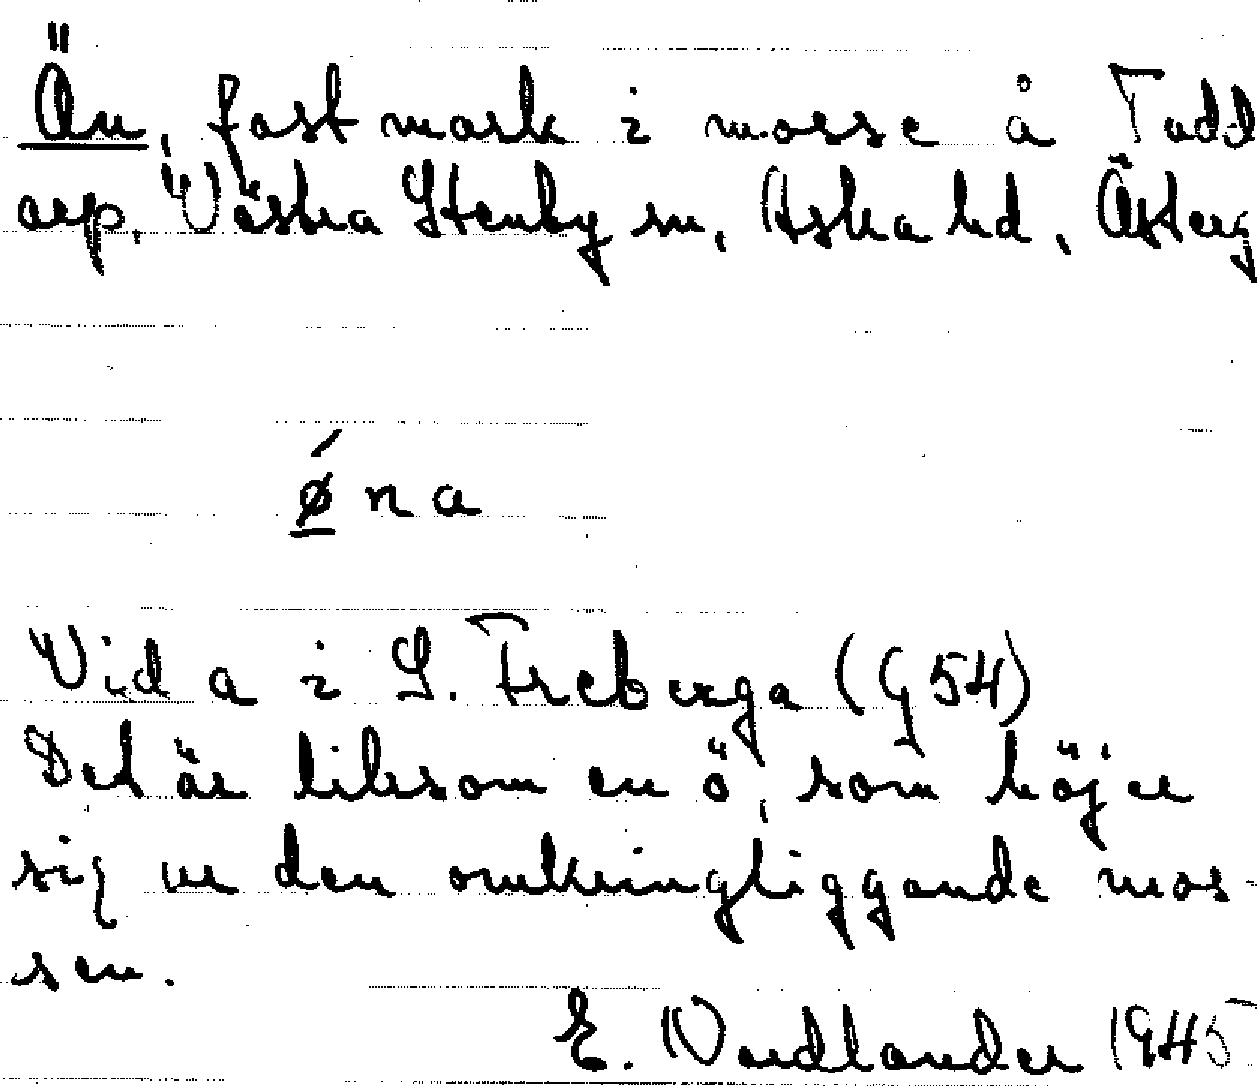 Ön, fast mark i mosse å Tadd
orp, Västra Stenby sn, Aska hd, Österg
ǿna
Vid a i S. Freberga (G54)
Det är liksom en ö, som höjer
sig ur den omkringliggande mos-
sen.
E. Nordlander 1945